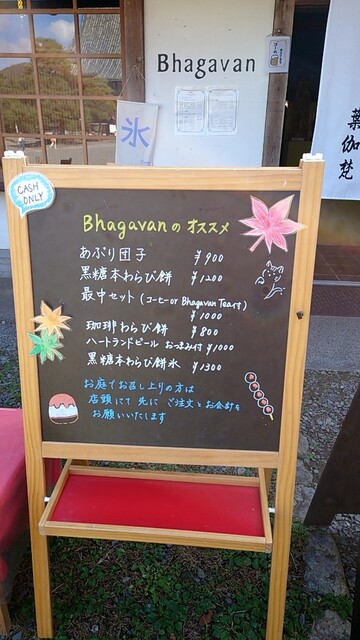 Bhagavan
氷
葉
伽
梵
CASH
ONLY
Bhagavanの オススメ
あぶり団子 ¥900
黒糖本わらび餅 ¥1200
最中セット (コーヒー or Bhagavan Tea付)
¥1000
珈琲わらび餅 ¥800
ハートランドビール おつまみ付 ¥1000
黒糖本わらび餅氷 ¥1300
お庭でお召し上りの方は
店頭にて 先に ご注文とお会計を
お願いいたします